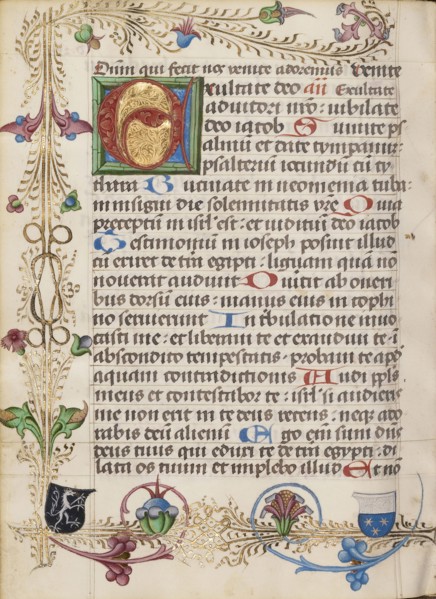 Dm̄m qui fecit nos venite adoremus venite
Exultate deo añ Exultate
adiutori nr̄o: iubilate
deo iacob Sumite ps
almum et date tympanum:
psalterium iocundum cū cy
thara Bucinate in neomenia tuba:
in insigni die solemnitatis vr̄e Quia
preceptum in isrl̄ est: et iuditium deo iacob
Testimonium in ioseph posuit illud
cū exiret de tr̄a egypti: liguam quā nō
noverat audivit Divertit ab oneri
bus dorsum eius: manus eius in cophi
no servierunt In tribulatione invo
casti me: et liberavi te et exaudivi te: ī
abscondito tempestatis: probavi te apd̄
aquam contradictionis Audi ppl̄s
meus et contestabor te: isrl̄ si audieris
me non erit in te deus recens: neqz ado
rabis deū alienū Ego enī sum dn̄s
deus tuus qui eduxi te de tr̄a egypti: di
lata os tuum et implebo illud Et nō